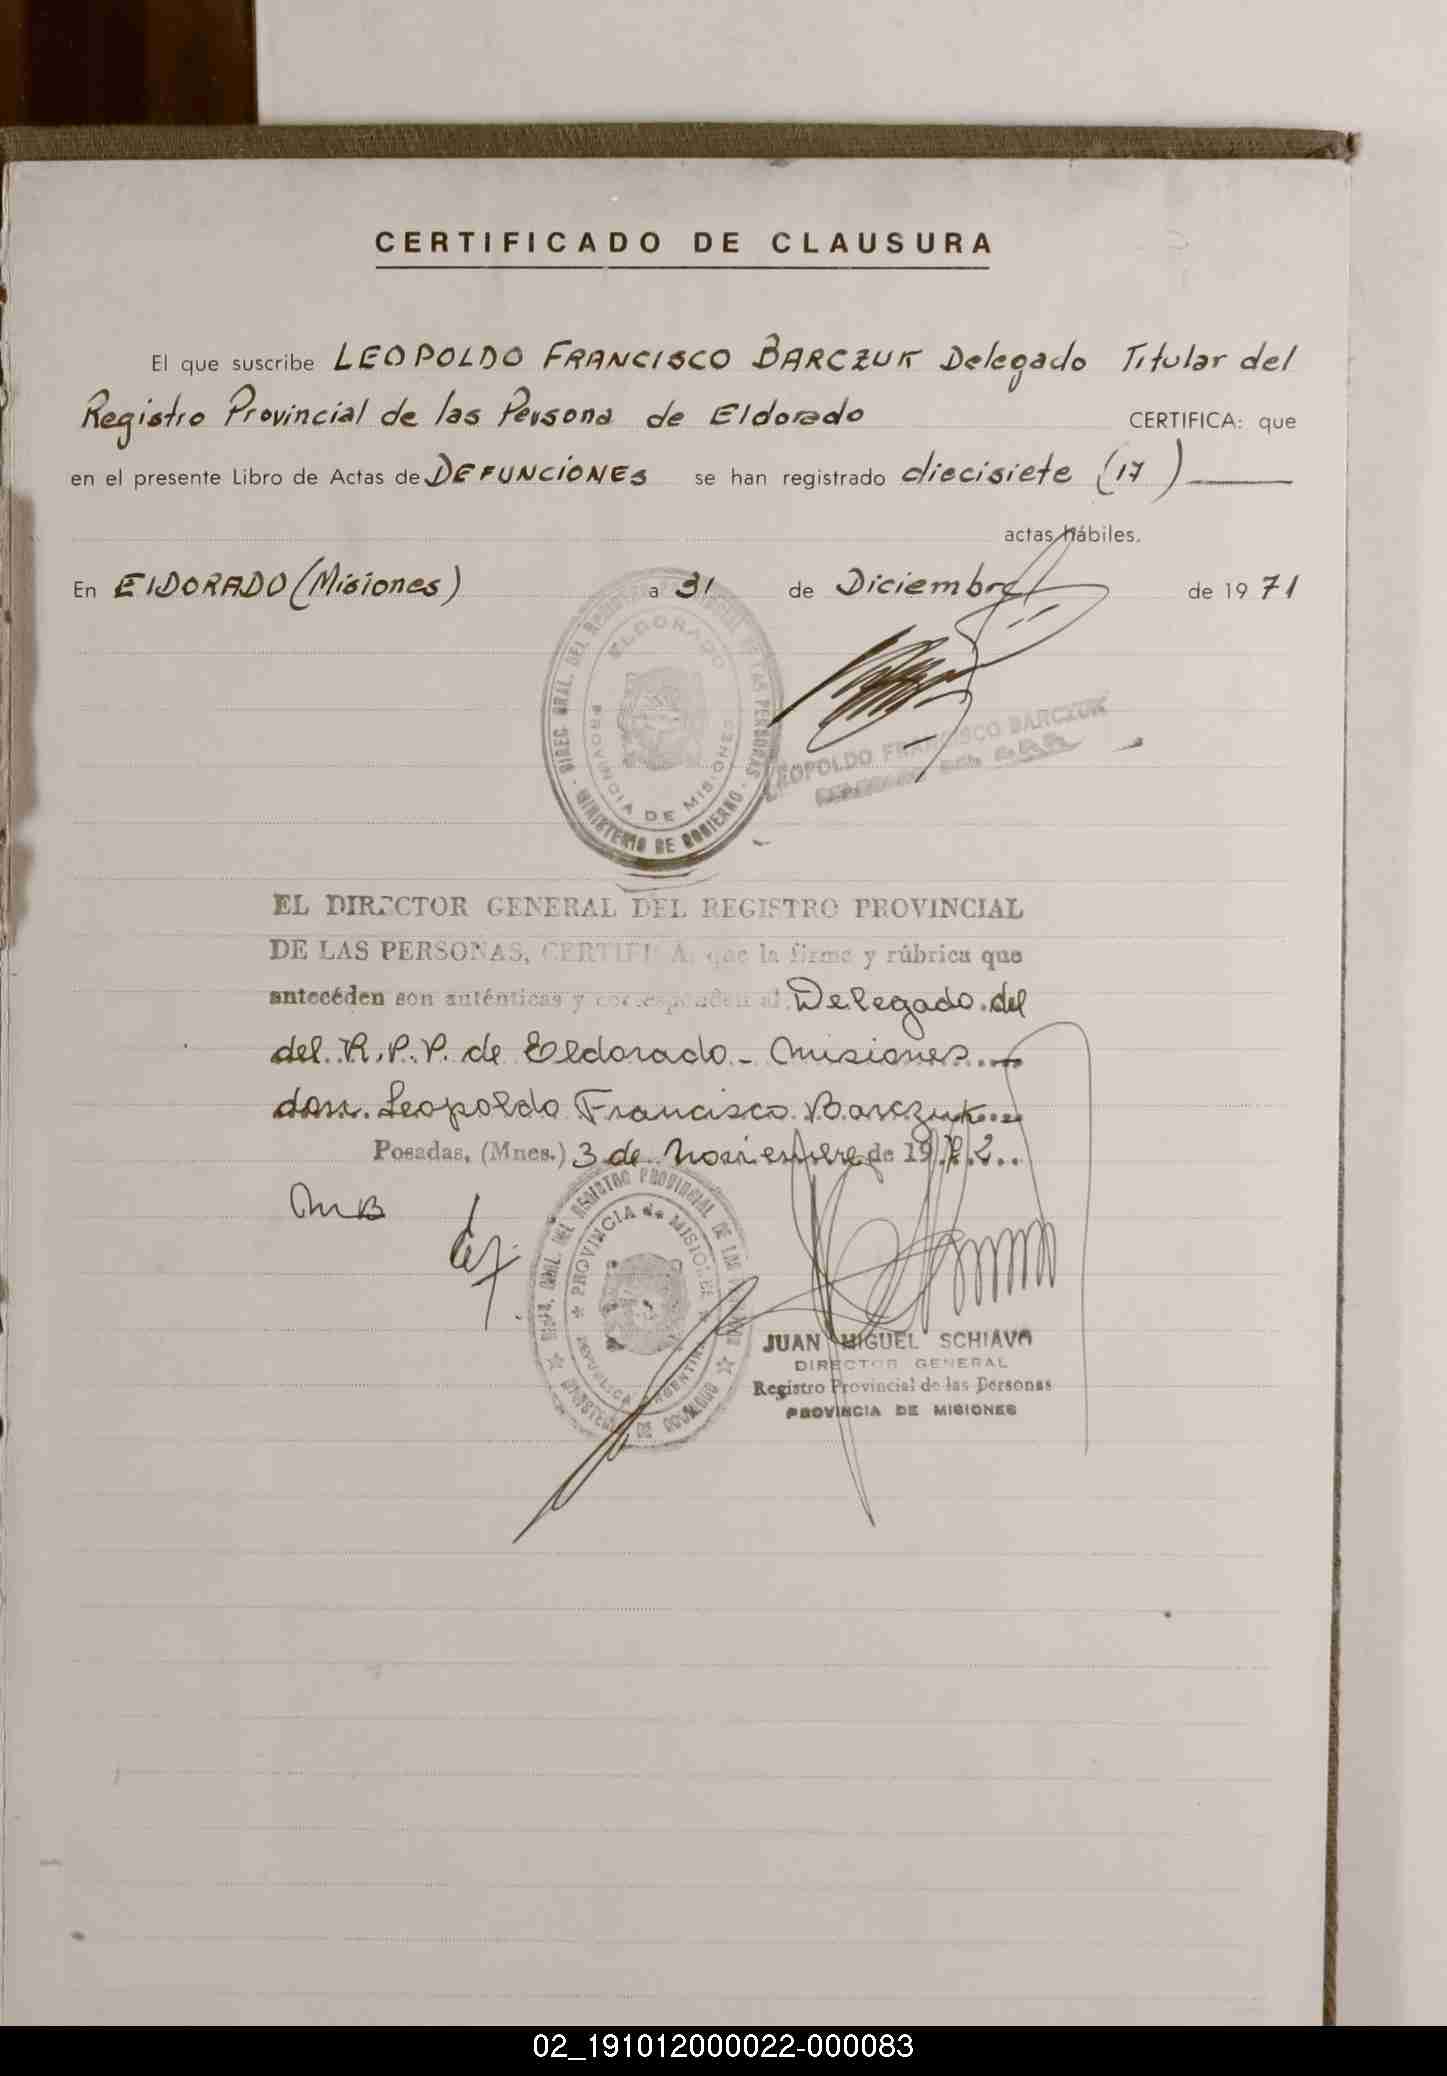 CERTIFICADO DE CLAUSURA
El que suscribe LEOPOLDO FRANCISCO BARCZUK Delegado Titular del
Registro Provincial de las Persona de Eldorado CERTIFICA: que
en el presente Libro de Actas de DEFUNCIONES se han registrado diecisiete (17)
actas hábiles.
En ElDORADO (Misiones) a 31 de Diciembre de 1971
DIREC. GRAL. DEL REGISTRO PROVINCIAL DE LAS PERSONAS
ELDORADO
PROVINCIA DE MISIONES
MINISTERIO DE GOBIERNO
LEOPOLDO FRANCISCO BARCZUK
EL DIRECTOR GENERAL DEL REGISTRO PROVINCIAL
DE LAS PERSONAS, CERTIFICA, que la firma y rúbrica que
antecéden son auténticas y corresponden al Delegado del
del R.P.P. de Eldorado - Misiones
don Leopoldo Francisco Barczuk
Posadas, (Mnes.) 3 de Noviembre de 1972
MB
DIREC. GRAL. DEL REGISTRO PROVINCIAL DE LAS PERSONAS
PROVINCIA de MISIONES
REPUBLICA ARGENTINA
MINISTERIO DE GOBIERNO
JUAN MIGUEL SCHIAVO
DIRECTOR GENERAL
Registro Provincial de las Personas
PROVINCIA DE MISIONES
02_191012000022-000083